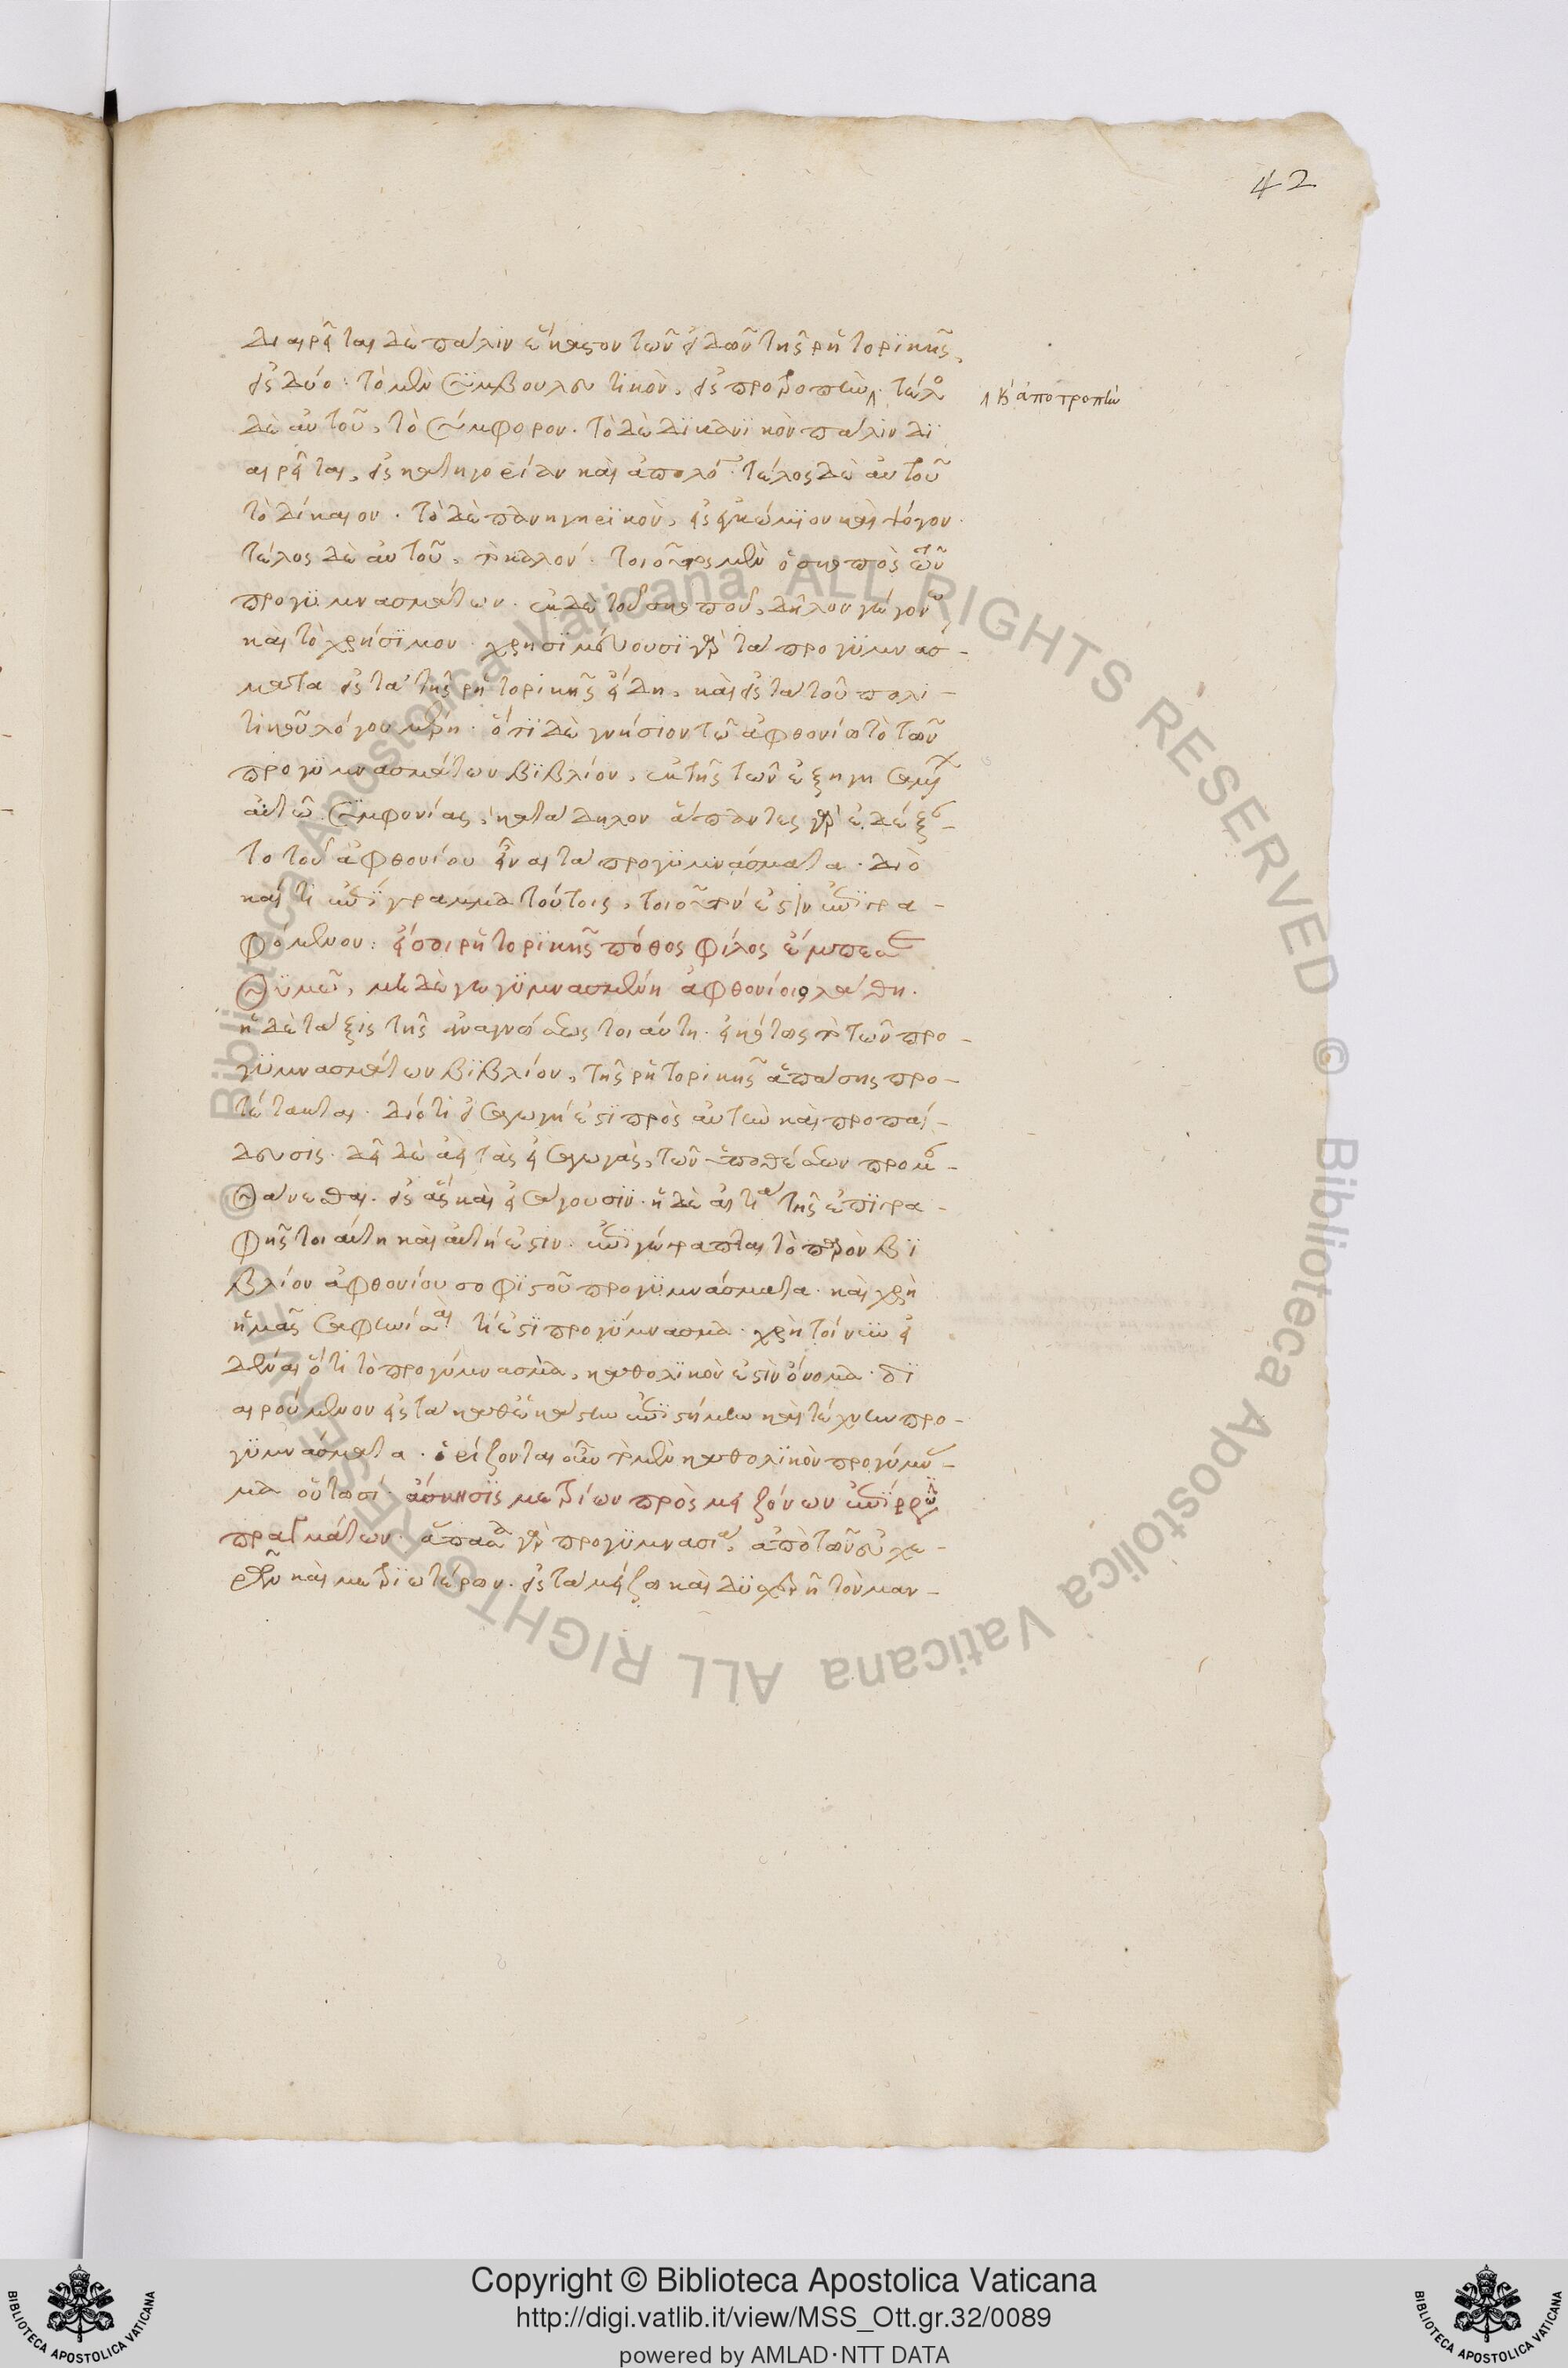 42
διαιρεῖται δὲ πάλιν ἕκαστον τῶν εἰδῶν τῆς ῥητορικῆς,
εἰς δύο· τὸ μὲν συμβουλευτικὸν, εἰς προτροπὴν τέλος
καὶ ἀποτροπὴν
δὲ αὐτοῦ, τὸ σύμφορον. τὸ δὲ δικανικὸν πάλιν δι
αιρεῖται, εἰς κατηγορίαν καὶ ἀπολογίαν· τέλος δὲ αὐτοῦ
τὸ δίκαιον. τὸ δὲ πανηγυρικὸν, εἰς ἐγκώμιον καὶ ψόγον.
τέλος δὲ αὐτοῦ, τὸ καλόν. τοιοῦτος μὲν ὁ σκοπὸς τῶν
προγυμνασμάτων. ἐκ δὲ τοῦ σκοποῦ, δῆλον γέγονε
καὶ τὸ χρήσιμον. χρησιμεύουσι γὰρ τὰ προγυμνάσ-
ματα εἰς τὰ τῆς ῥητορικῆς εἴδη, καὶ εἰς τὰ τοῦ πολι-
τικοῦ λόγου μέρη. ὅτι δὲ γνήσιον τῷ ἀφθονίῳ τὸ τῶν
προγυμνασμάτων βιβλίον, ἐκ τῆς τῶν ἐξηγησαμένων
αὐτῶ συμφωνίας, κατάδηλον ἅπαντες γὰρ ἐδέξαν-
το τοῦ ἀφθονίου εἶναι τὰ προγυμνάσματα. διὸ
καί τι ἐπίγραμμα τούτοις, τοιοῦτόν ἐστιν ἐπιγρα-
φόμενον: εἴσοι ῥητορικῆς πόθος φίλος ἔμπεσε
θυμῶ, μὴ δέ γε γυμνασμένη ἀφθονίοιο λάθη.
ἡ δὲ τάξις τῆς ἀναγνώσεως τοιαύτη. εἰκότως τὸ τῶν προ-
γυμνασμάτων βιβλίον, τῆς ῥητορικῆς ἁπάσης προ-
τέτακται. διότι εἰσαγωγή ἐστι πρὸς αὐτὴν καὶ προπαί-
δευσις. δεῖ δὲ ἀεὶ τὰς εἰσαγωγὰς, τῶν ὑποθέσεων προμα-
θάνεσθαι. εἰς ἃς καὶ εἰσάγουσιν. ἡ δὲ αἰτία τῆς ἐπιγρα-
φῆς τοιαύτη καὶ αὐτή ἐστιν. ἐπιγέγραπται τὸ παρὸν βι
βλίον ἀφθονίου σοφιστοῦ προγυμνάσματα. καὶ χρὴ
ἡμᾶς σαφηνίσαι τί ἐστι προγύμνασμα. χρὴ τοίνυν εἰ
δέναι ὅτι τὸ προγύμνασμα, καθολικὸν ἐστὶν ὄνομα. δι
αιρούμενον εἰς τὰ καθ' ἑκάστην ἐπιστήμην καὶ τέχνην προ-
γυμνάσματα. ὁρίζονται οὖν τὸ μὲν καθολικὸν προγύμνασ
μα οὕτωσί. ἄσκησις μετρίων πρὸς μειζόνων ἐπίρρωσιν
πραγμάτων. ἅπασα γὰρ προγυμνασία, ἀπὸ τῶν εὐχε-
ρῶν καὶ μετριωτέρων. εἰς τὰ μείζω καὶ δυσχερῆ τὸν μαν-
Copyright © Biblioteca Apostolica Vaticana
http://digi.vatlib.it/view/MSS_Ott.gr.32/0089
powered by AMLAD·NTT DATA
© Biblioteca Apostolica Vaticana ALL RIGHTS RESERVED
© Biblioteca Apostolica Vaticana ALL RIGHTS RESERVED
BIBLIOTECA APOSTOLICA VATICANA
BIBLIOTECA APOSTOLICA VATICANA